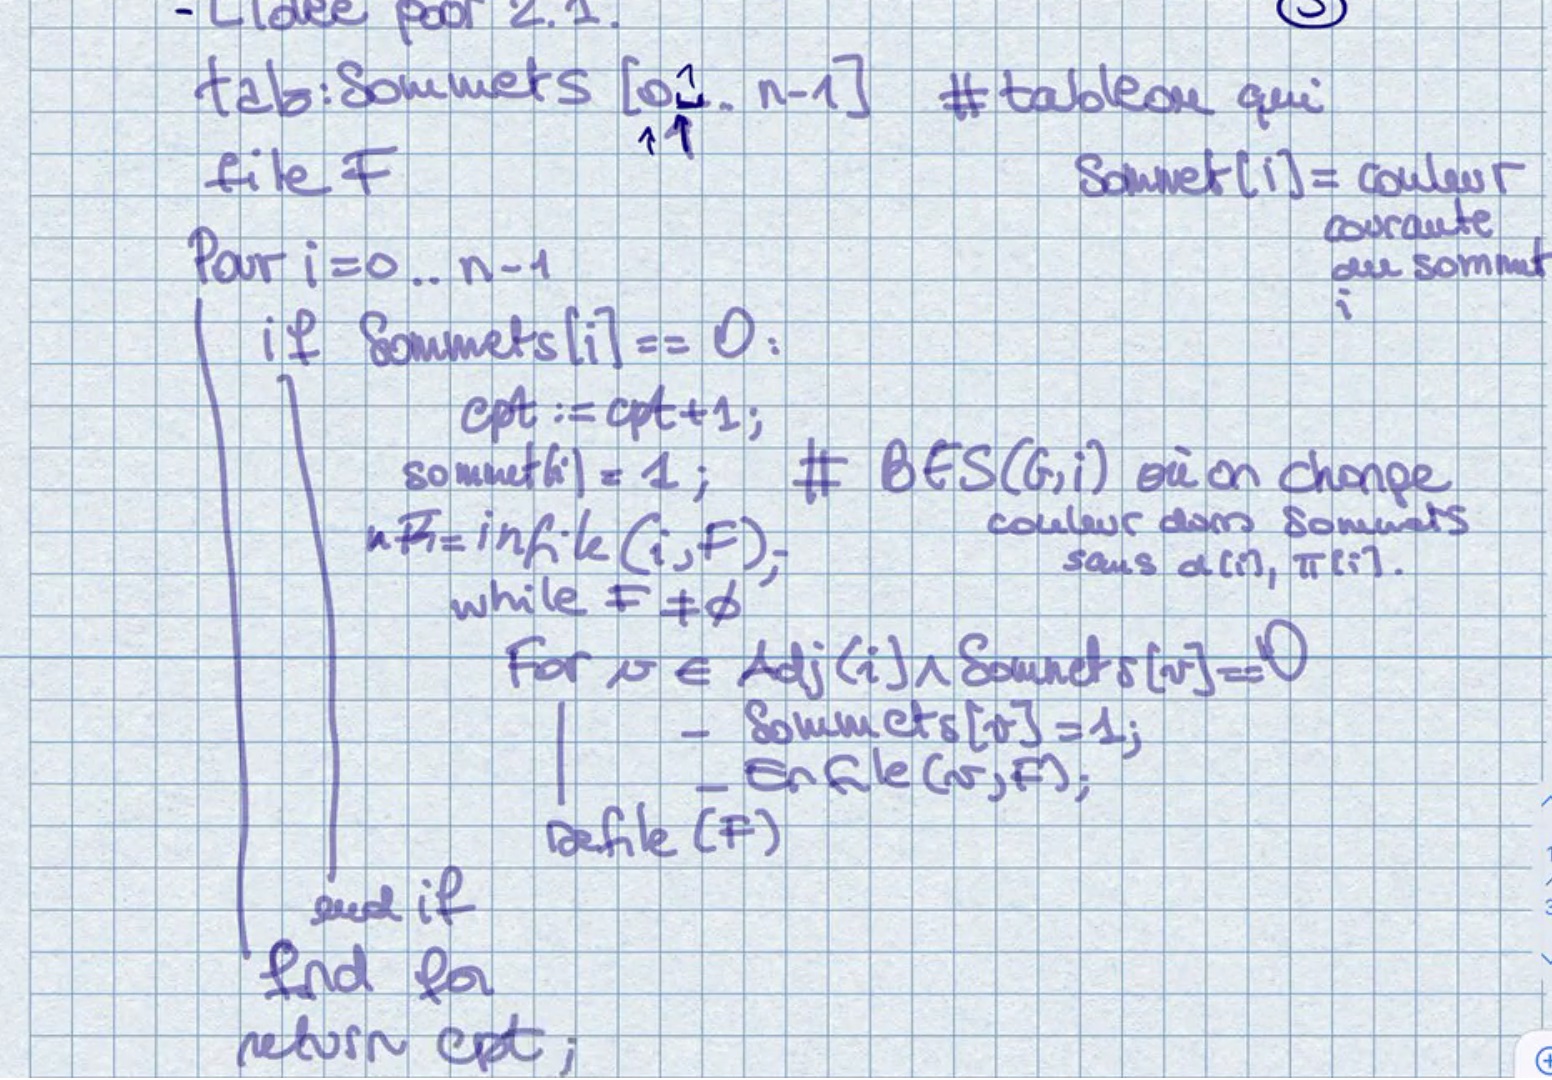 - L'idée pour 2.1. 3
tab: Sommets [0 1.. n-1] # tableau qui
file F Sommet[i] = couleur
courante
du sommet
i
Pour i=0.. n-1
if Sommets[i] == 0:
cpt := cpt+1;
sommet(i) = 1; # BFS(G,i) où on change
couleur dans Sommets
sans d[i], π[i].
= infile(i,F);
while F ≠ ∅
For v ∈ Adj(i) ∧ Sommets[v]==0
- Sommets[v] = 1;
- Enfile(v,F);
Defile (F)
end if
End for
return cpt;